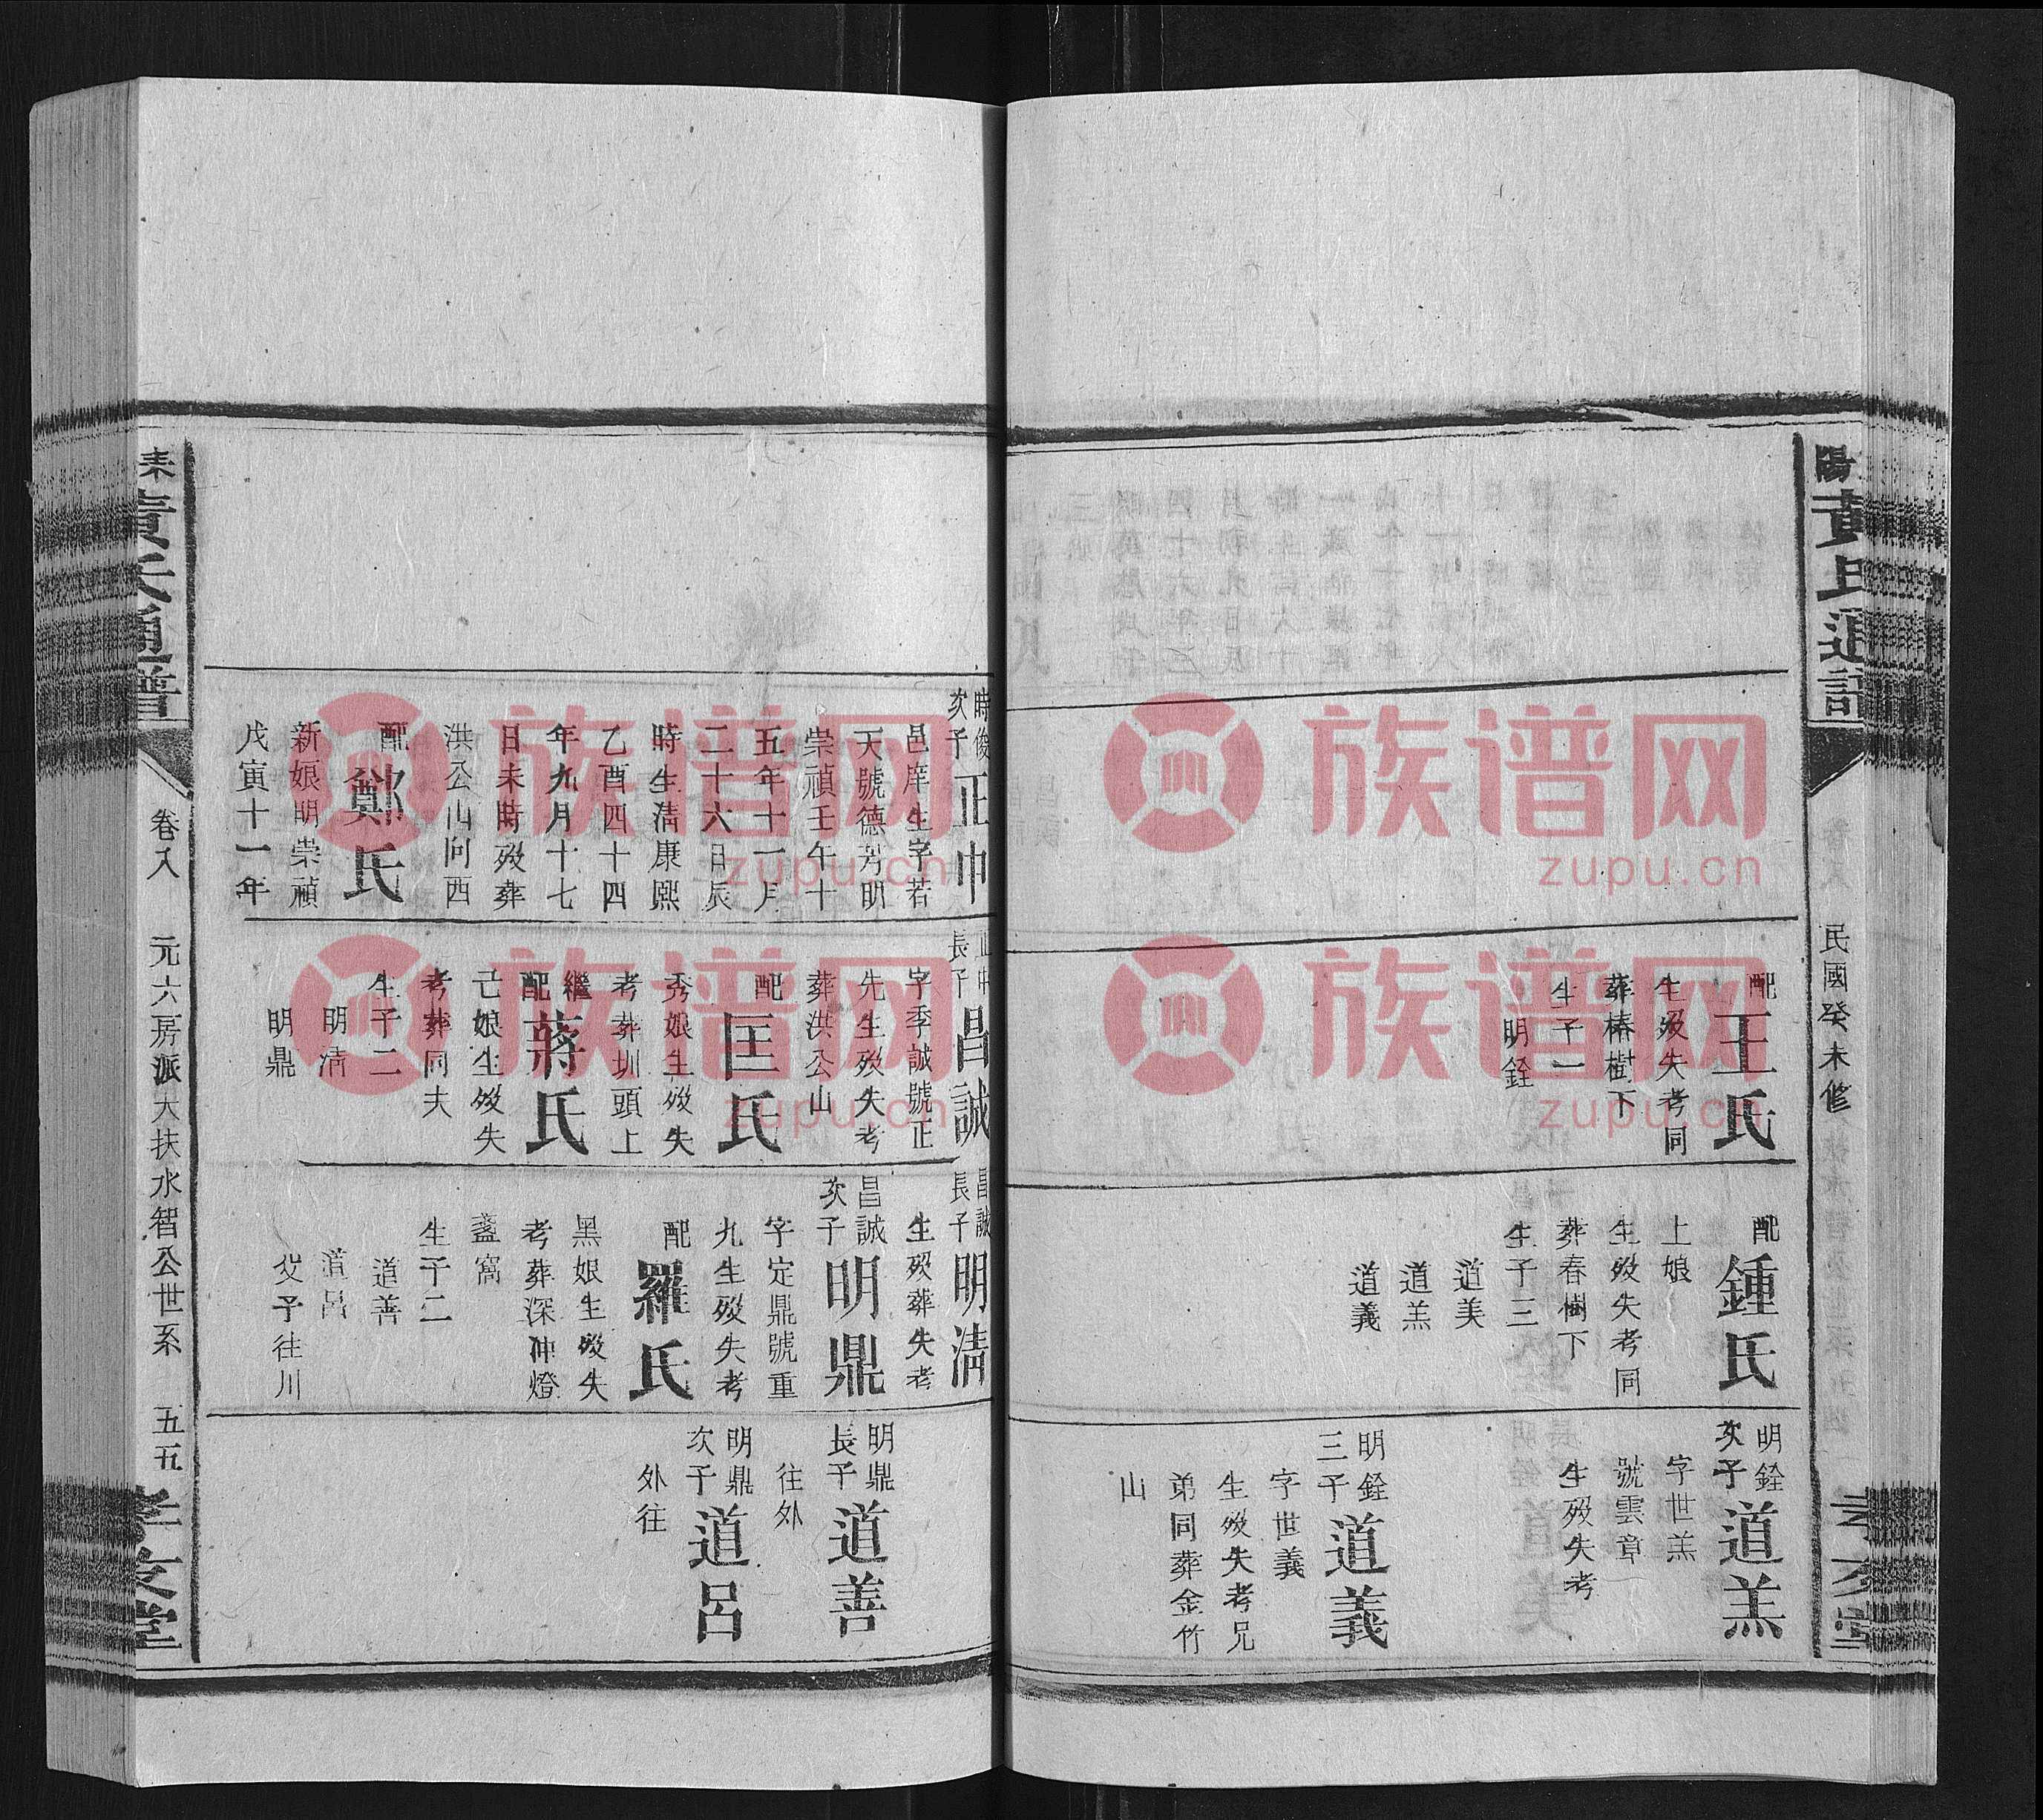 陽
黃氏通譜
民國癸未修
配
王氏
生殁失考同
葬椿樹下
生子一
明銓
配
鍾氏
上娘
生殁失考同
葬春樹下
生子三
道美
道羔
道義
明銓
次子
道羔
字世羔
號雲章
生殁失考
明銓
三子
道義
字世義
生殁失考兄
弟同葬金竹
山
時俊
次子
正中
邑庠生字若
天號德芳明
崇禎壬午十
五年十一月
二十六日辰
時生清康熙
乙酉四十四
年九月十七
日未時殁葬
洪公山向西
配
鄭氏
新娘明崇禎
戊寅十一年
正中
長子
昌誠
字季誠號正
先生殁失考
葬洪公山
配
匡氏
秀娘生殁失
考葬圳頭上
繼
配
蔣氏
亡娘生殁失
考葬同夫
生子二
明清
明鼎
昌誠
長子
明清
生殁葬失考
昌誠
次子
明鼎
字定鼎號重
九生殁失考
配
羅氏
黑娘生殁失
考葬深冲燈
盞窩
生子二
道善
道呂
父子往川
明鼎
長子
道善
往外
明鼎
次子
道呂
外往
耒
黃氏通譜
卷八
元六房派大扶水智公世系
五五
孝友堂
族谱网
zupu.cn
族谱网
zupu.cn
族谱网
zupu.cn
族谱网
zupu.cn